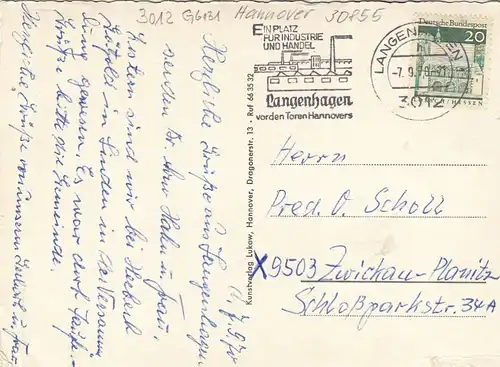 3012 G6131 Hannover 30855
EIN PLATZ
FÜR INDUSTRIE
UND HANDEL
Langenhagen
vor den Toren Hannovers
LANGENHAGEN
3012
Deutsche Bundespost
20
HESSEN
Herzliche Grüße aus Langenhagen
senden Br. Hahn u. Frau.
Gestern sind wir bei
in Linden in der Versamm-
lung gewesen. Es war dort Taufe.-
Grüße bitte die Gemeinde.
Herzliche Grüße von unserem
Kunstverlag Lukow, Hannover, Dragonerstr. 13 · Ruf 66 35 32
Herrn
Pred. O. Scholl
X 9503 Zwickau-Planitz
Schloßparkstr. 34A